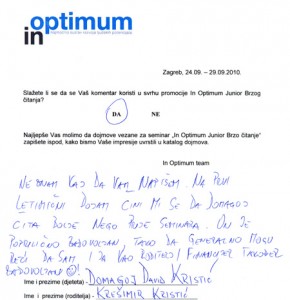 in optimum
Zagreb, 24.09. – 29.09.2010.
Slažete li se da se Vaš komentar koristi u svrhu promocije In Optimum Junior Brzog
čitanja?
DA NE
Najljepše Vas molimo da dojmove vezane za seminar „In Optimum Junior Brzo čitanje"
zapišete ispod, kako bismo Vaše impresije uvrstili u katalog dojmova.
In Optimum team
NE ZNAM KAJ DA VAM NAPIŠEM. NA PRVI
LETIMIČNI DOJAM ČINI MI SE DA DOMAGOJ
ČITA BOLJE NEGO PRIJE SEMINARA. ON JE
POTPUNO ZADOVOLJAN, TAKO DA GENERALNO MOGU
REĆI DA SAM I JA KAO RODITELJ I FINANCIJER TAKOĐER
ZADOVOLJAN!
Ime i prezime (djeteta) DOMAGOJ DAVID KRISTIĆ
Ime i prezime (roditelja) - KREŠIMIR KRISTIĆ